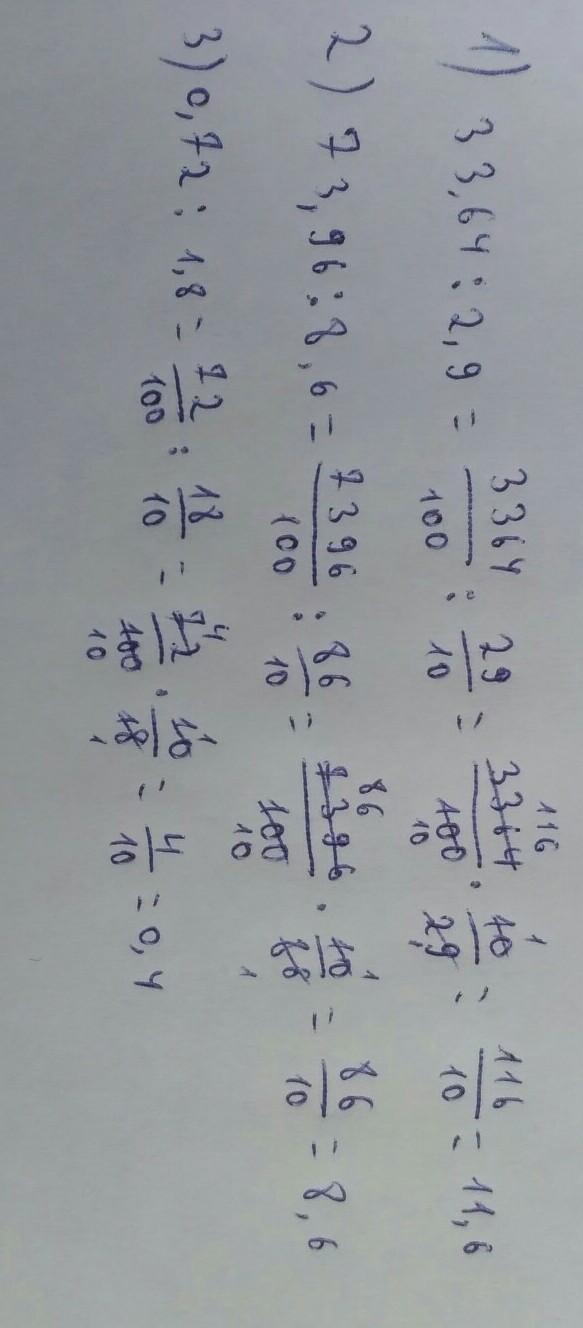 1) 33,64 : 2,9 = 3364/100 : 29/10 = 3364/100 116 10 · 10/29 1 1 = 116/10 = 11,6
2) 73,96 : 8,6 = 7396/100 : 86/10 = 7396/100 86 10 · 10/86 1 1 = 86/10 = 8,6
3) 0,72 : 1,8 = 72/100 : 18/10 = 72/100 4 10 · 10/18 1 1 = 4/10 = 0,4